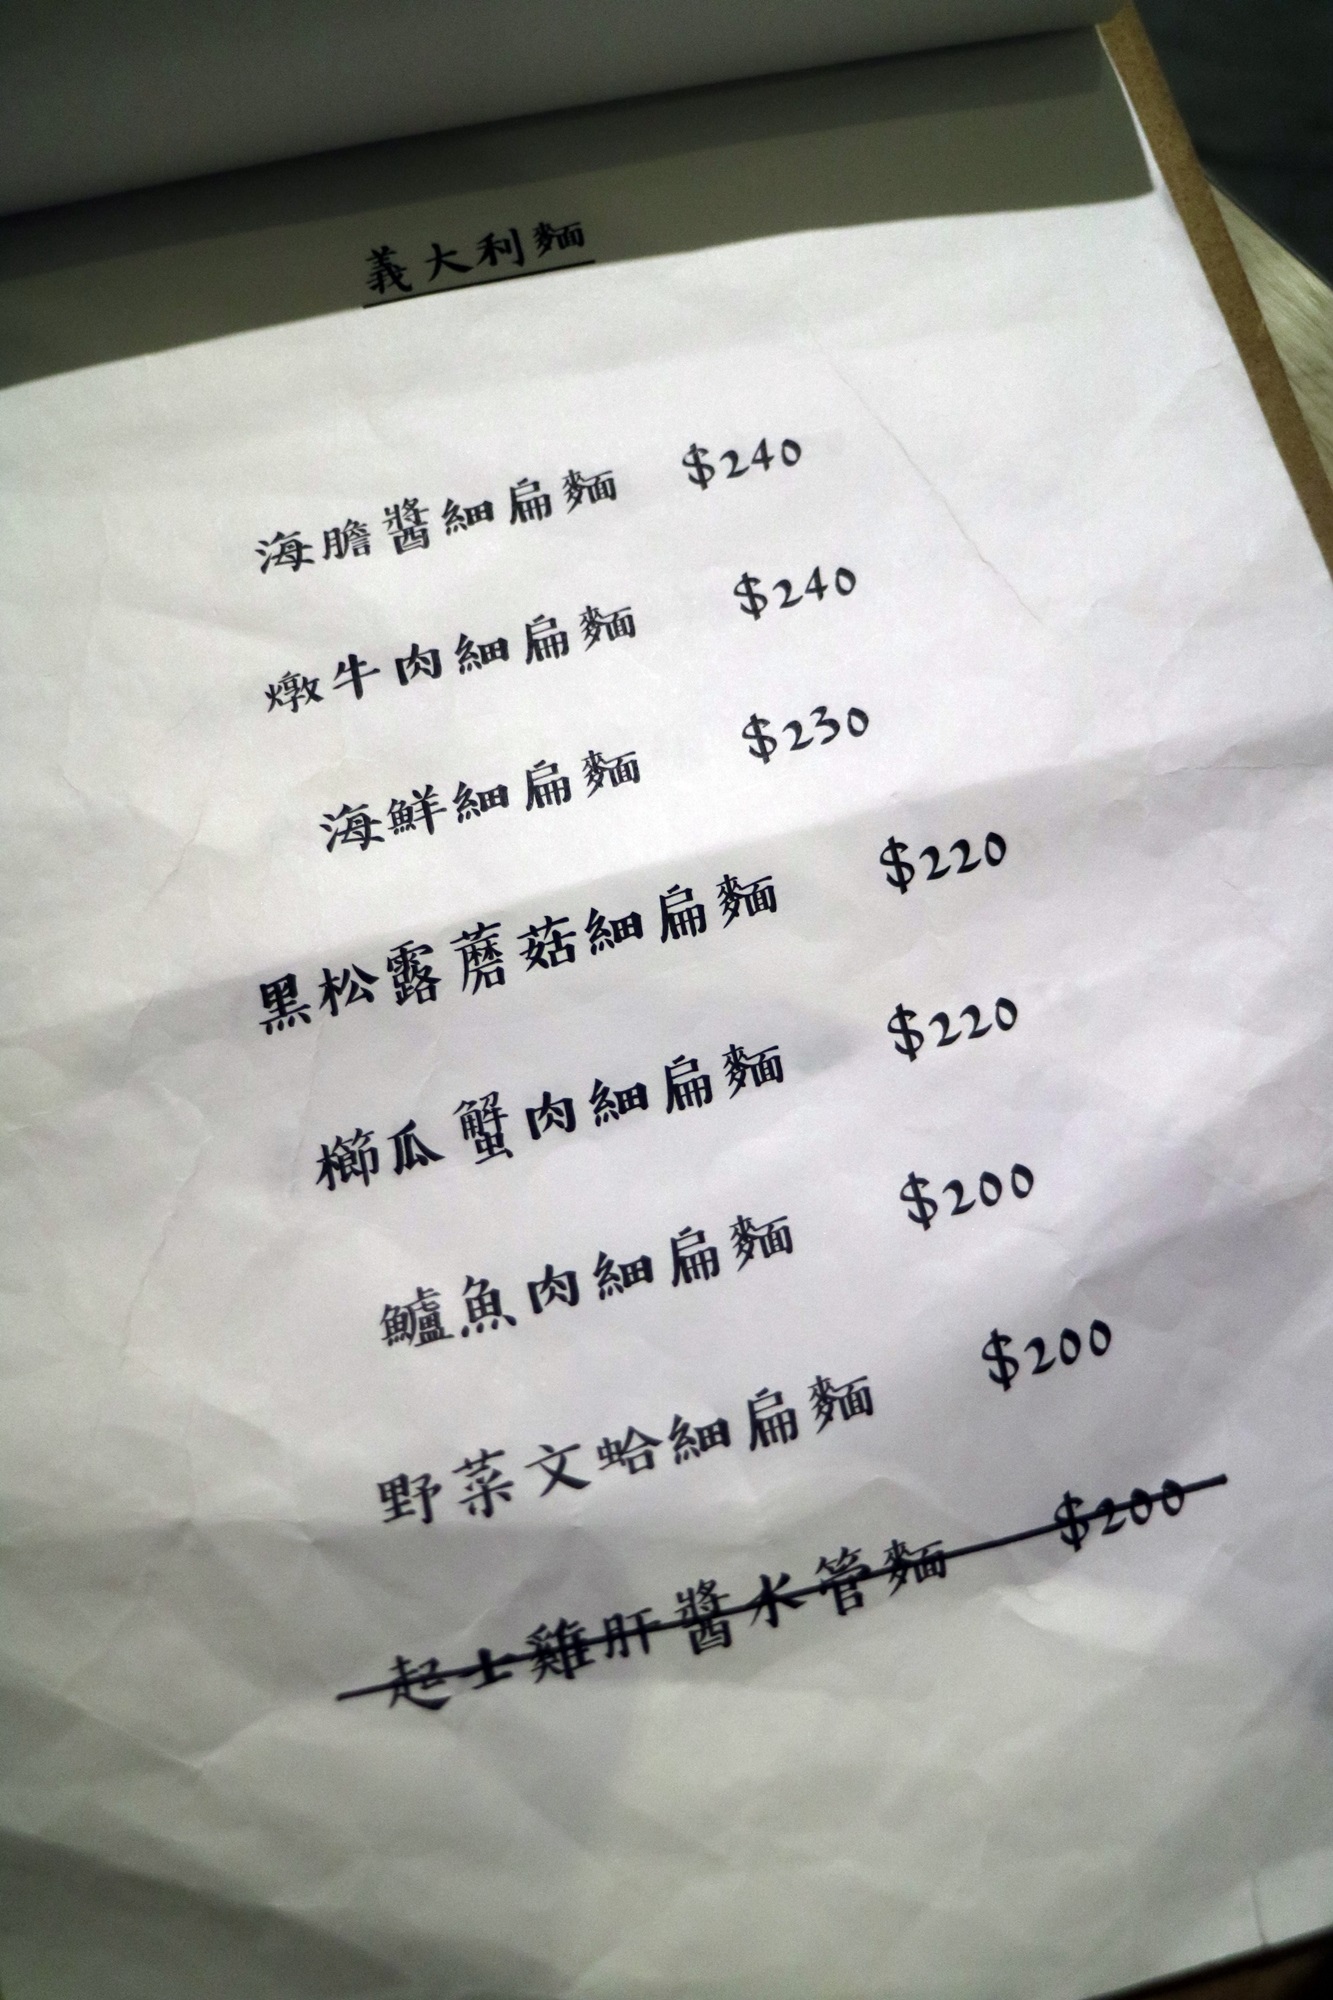 義大利麵
海膽醬細扁麵 $240
燉牛肉細扁麵 $240
海鮮細扁麵 $230
黑松露蘑菇細扁麵 $220
櫛瓜蟹肉細扁麵 $220
鱸魚肉細扁麵 $200
野菜文蛤細扁麵 $200
起士雞肝醬水管麵 $200